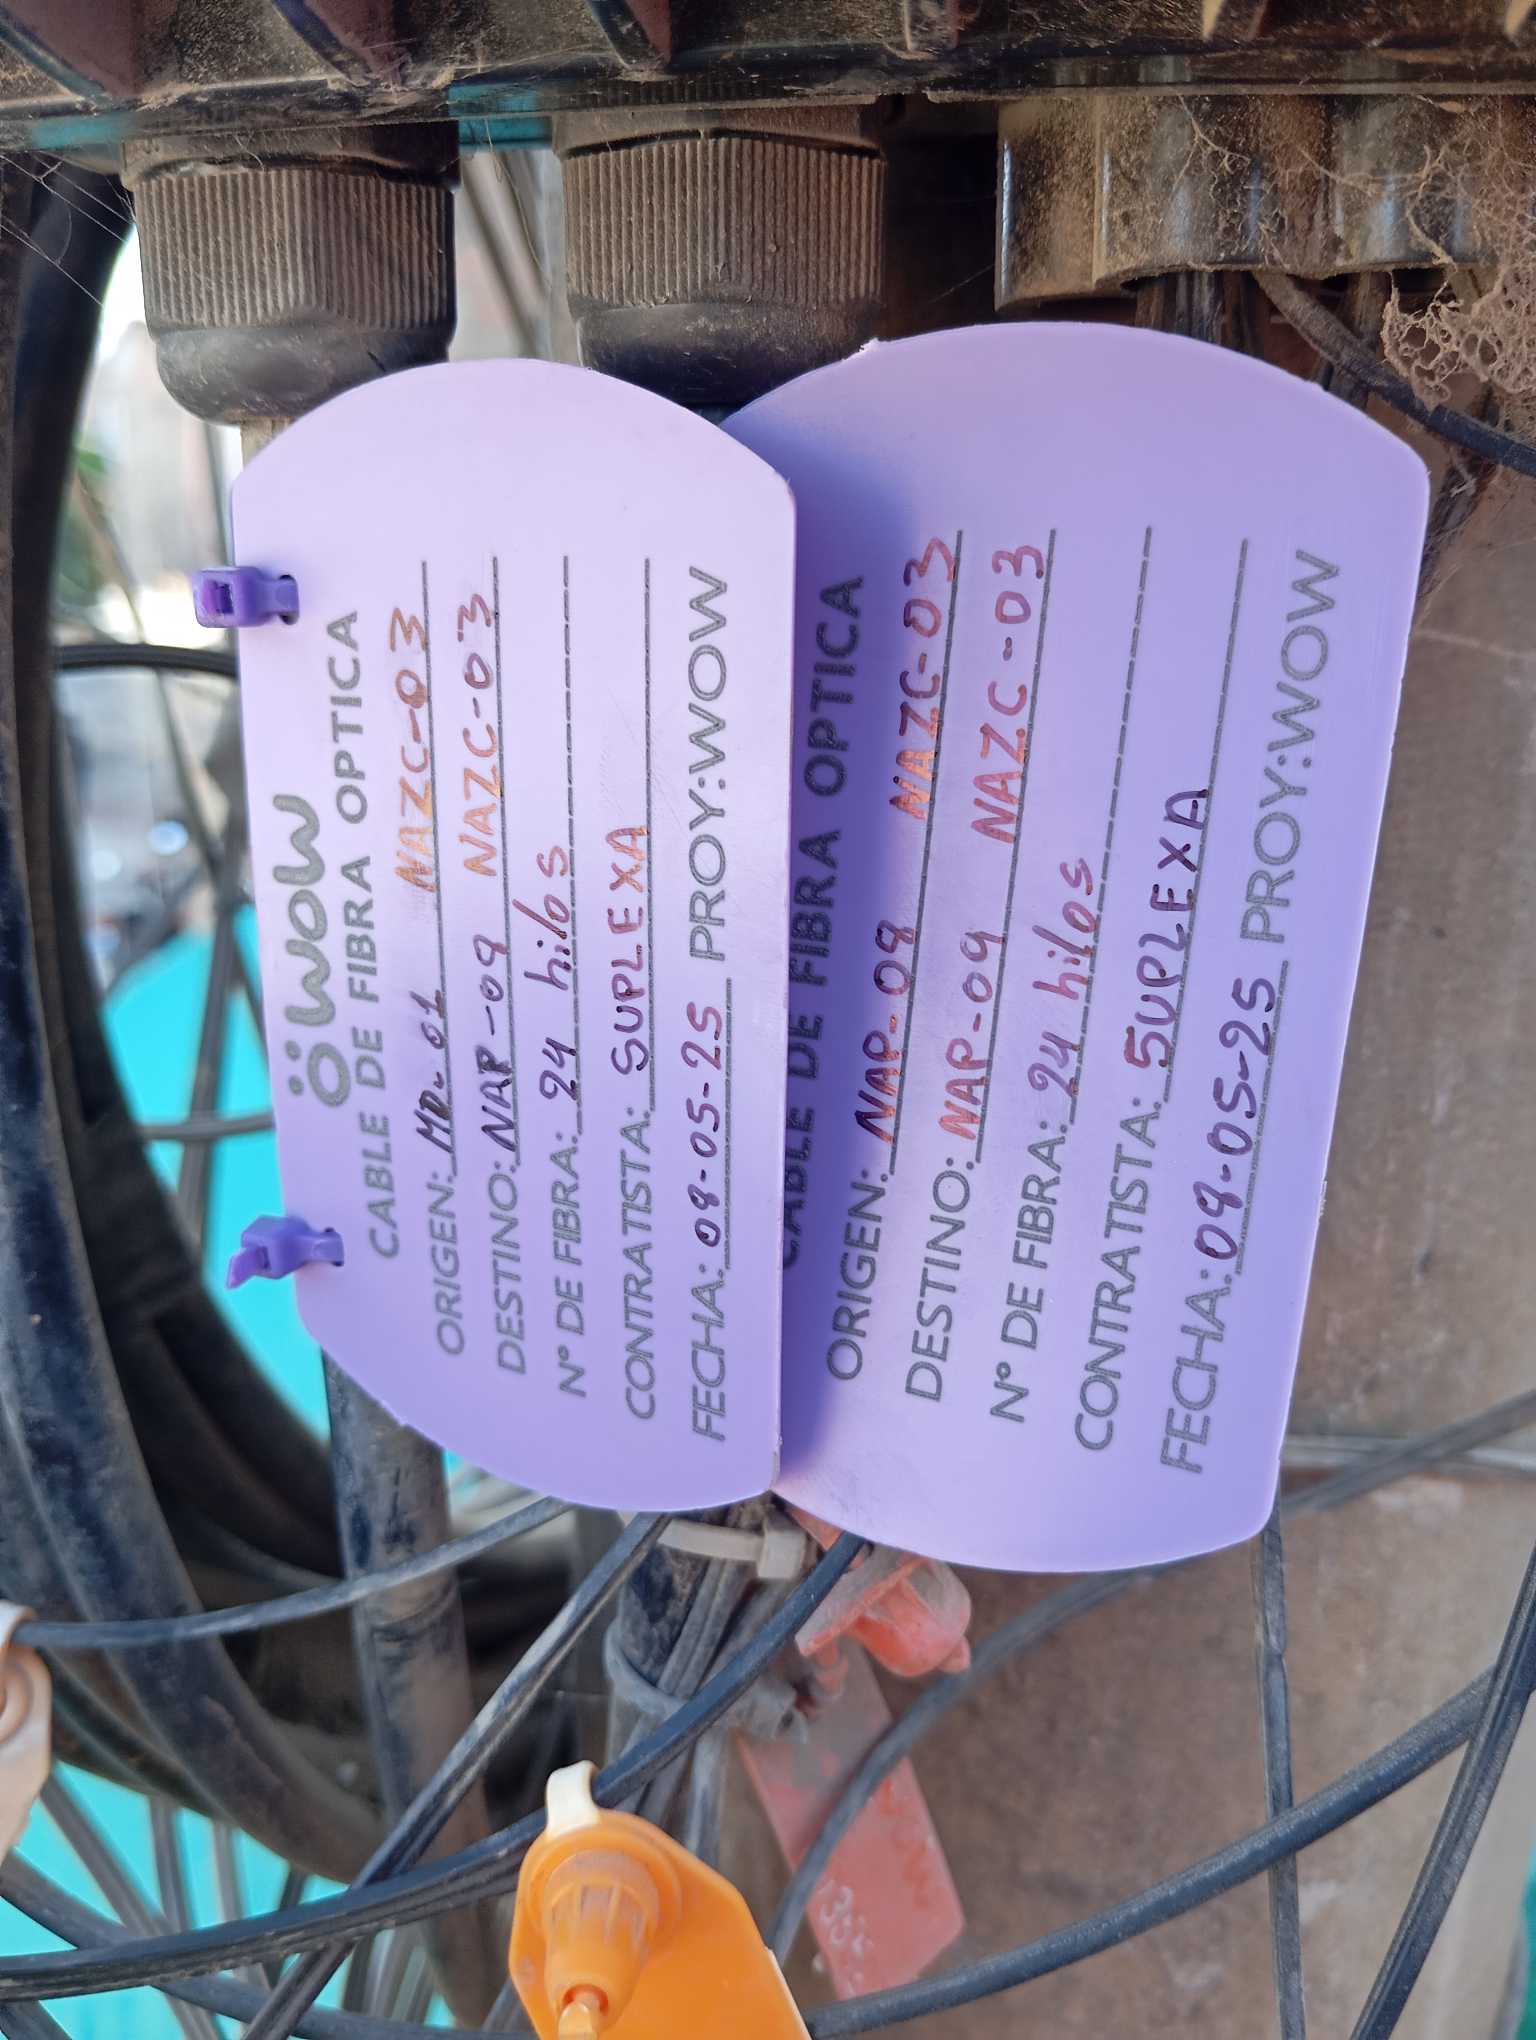 wow
CABLE DE FIBRA OPTICA
ORIGEN: MD-01 NAZC-03
DESTINO: NAP-09 NAZC-03
N° DE FIBRA: 24 hilos
CONTRATISTA: SUPLEXA
FECHA: 09-05-25 PROY:WOW
CABLE DE FIBRA OPTICA
ORIGEN: NAP-09 NAZC-03
DESTINO: NAP-09 NAZC-03
N° DE FIBRA: 24 hilos
CONTRATISTA: SUPLEXA
FECHA: 09-05-25 PROY:WOW